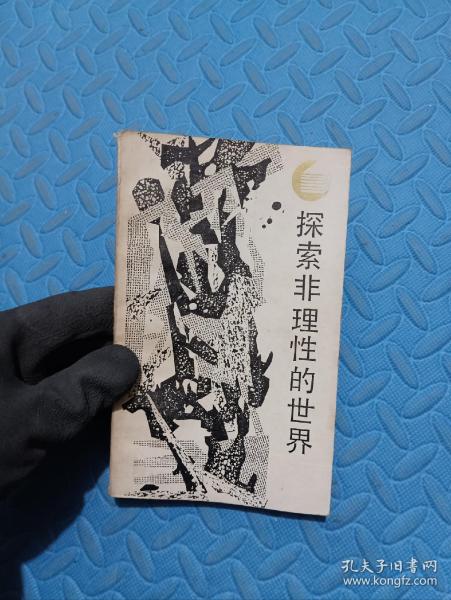 探索非理性的世界
孔夫子旧书网
www.kongfz.com